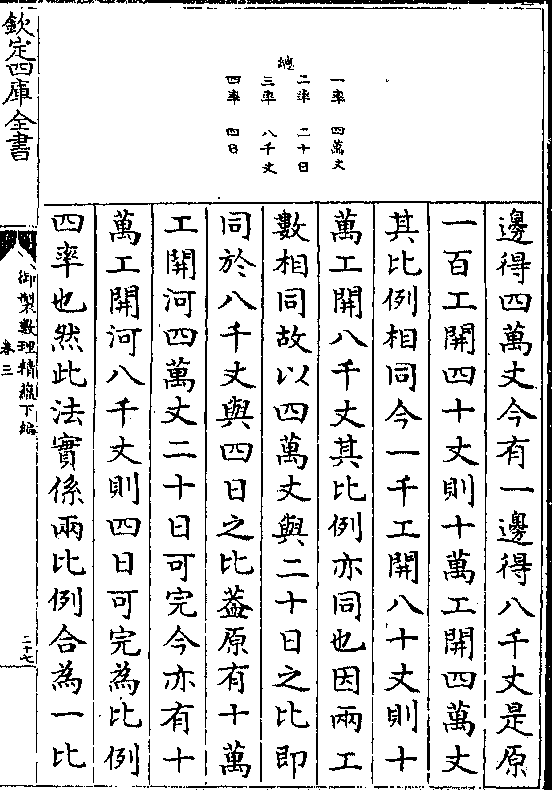 總
一率 四萬丈
二率 二十日
三率 八千丈
四率 四日
邊得四萬丈今有一邊得八千丈是原
一百工開四十丈則十萬工開四萬丈
其比例相同今一千工開八十丈則十
萬工開八千丈其比例亦同也因兩工
數相同故以四萬丈與二十日之比即
同於八千丈與四日之比葢原有十萬
工開河四萬丈二十日可完今亦有十
萬工開河八千丈則四日可完為比例
四率也然此法實係兩比例合為一比
欽定四庫全書
御製數理精蘊下編
卷三
二十七